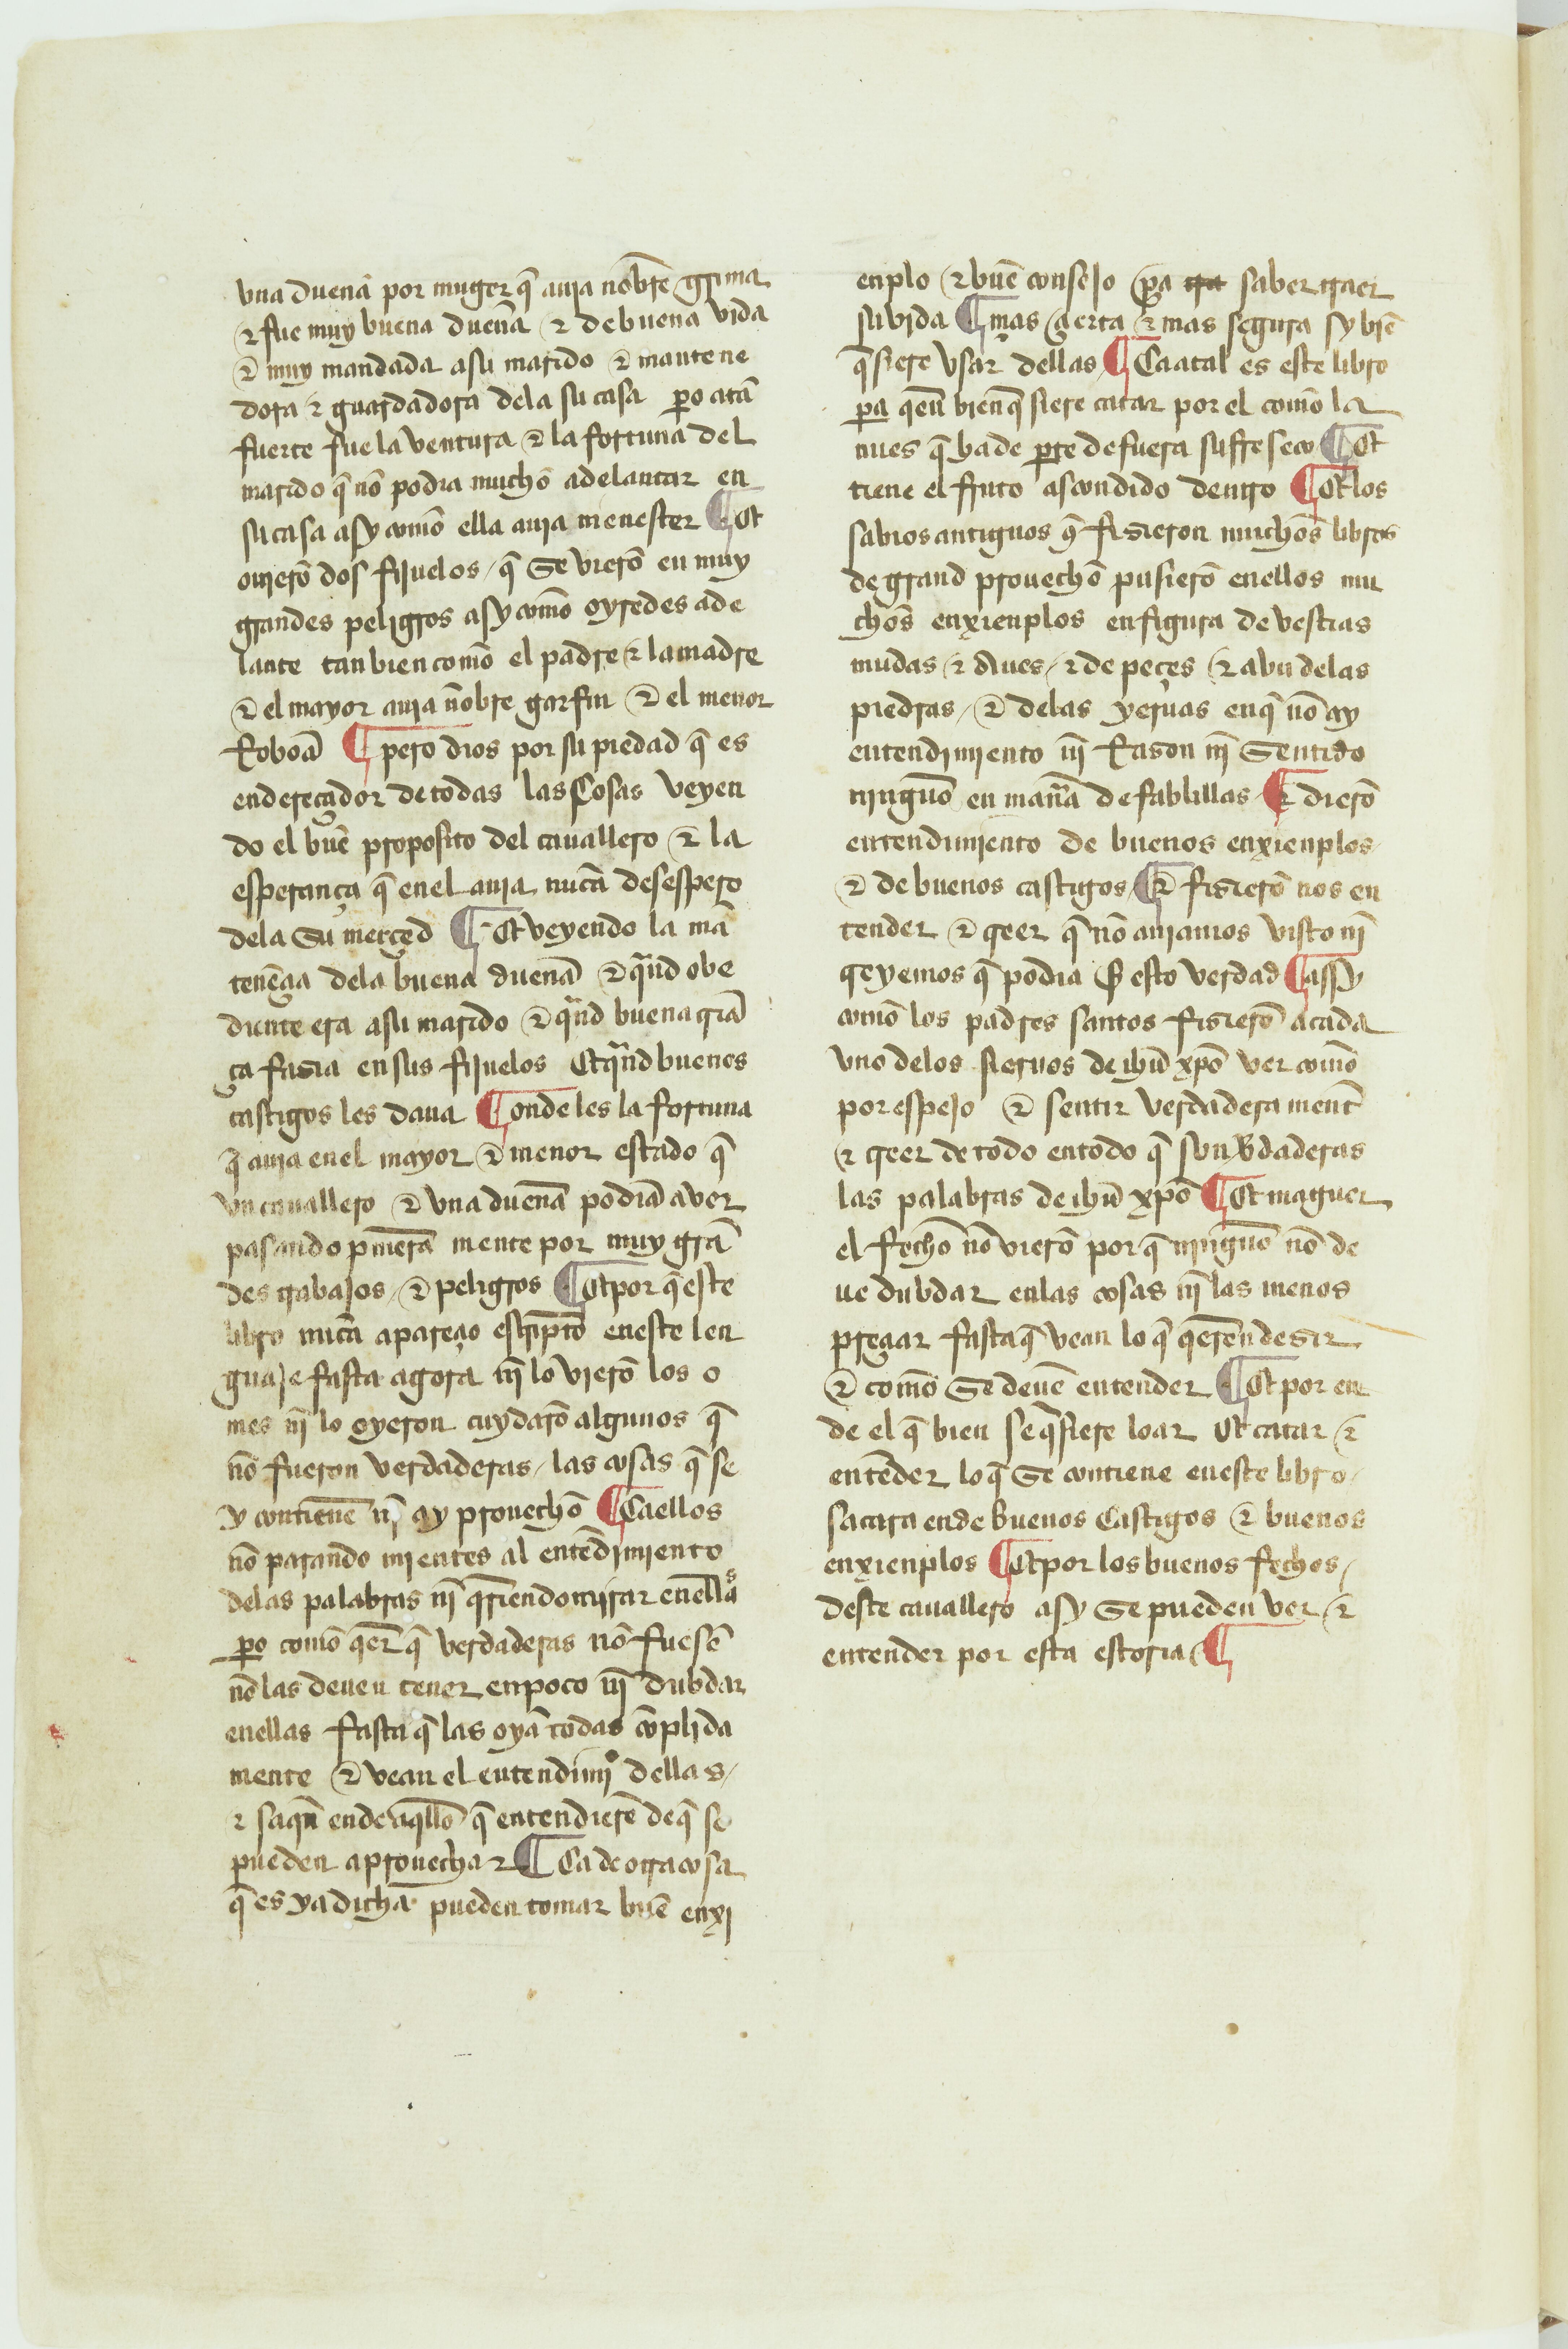 vna dueña por muger q̃ auia nõbre grima
⁊ fue muy buena dueña ⁊ de buena vida
⁊ muy mandada a su marido ⁊ mantene
dora ⁊ guardadora dela su casa pero atã
fuerte fue la ventura ⁊ la fortuna del
marido q̃ nõ podia mucho adelantar en
su casa asy com̃o ella auia menester ¶ Et
ouierõ dos fijuelos q̃ se vierõ en muy
grandes peligros asy com̃o oyredes ade
lante tan bien com̃o el padre ⁊ la madre
⁊ el mayor auia nõbre garfin ⁊ el menor
Roboã ¶ pero dios por su piedad q̃ es
endereçador de todas las Cosas veyen
do el buẽ proposito del cauallero ⁊ la
esperança q̃ enel auia nũca desespero
dela su merçed ¶ Et veyendo la mã
tenẽçia dela buena dueña ⁊ qũd obe
diente era a su marido ⁊ qũd buena criã
ça fazia en sus fijuelos Et qũnd buenos
castigos les daua ¶ onde les la fortuna
q̃ auia enel mayor ⁊ menor estado q̃
vn cauallero ⁊ vna dueña podiã aver
pasando pmera mente por muy grã
des trabajos ⁊ peligros ¶ Et por q̃ este
libro nũca apareçio escripto en este len
guaje fasta agora nĩ lo vierõ los o
mes nĩ lo oyeron cuydarõ algunos q̃
nõ fueron verdaderas las cosas q̃ se
y contienẽ nĩ ay prouecho ¶ Ca ellos
nõ parando mientes al entẽdimiento
delas palabras nĩ q̃riendo mirar enellas
pero com̃o q̃er q̃ verdaderas nõ fuesẽ
nõ las deuen tener en poco nĩ dubdar
enellas fasta q̃ las oyã todas cõplida
mente ⁊ vean el entendimiº dellas
⁊ saqn̄ ende aq̃llo q̃ entendierẽ de q̃ se
pueden aprouechar ¶ Ca de otra cosa
q̃ es ya dicha pueden tomar buẽ enxi
enplo ⁊ buẽ consejo pa saber traer
su vida ¶ mas çierta ⁊ mas segura sy biẽ
q̃siere vsar dellas ¶ Ca atal es este libro
pa q̃en bien q̃siere catar por el com̃o la
nues q̃ ha de pte de fuera fuste seco ¶ Et
tiene el fruto ascondido dentro ¶ Et los
sabios antiguos q̃ fizieron muchos libros
de grand prouecho pusierõ enellos mu
chos enxienplos en figura de vestias
mudas ⁊ aues ⁊ de peçes ⁊ avn delas
piedras ⁊ delas yeruas en q̃ nõ ay
entendimiento nĩ Razon nĩ sentido
ninguno en manᷓa de fablillas ¶ ⁊ dierõ
entendimiento de buenos enxienplos
⁊ de buenos castigos ¶ ⁊ fizierõ nos en
tender ⁊ creer q̃ nõ auiamos visto nĩ
creyemos q̃ podia ser esto verdad ¶ assy
com̃o los padres santos fizierõ a cada
vno delos sieruos de ihũ xp̃o ver com̃o
por espejo ⁊ sentir verdadera ment̃
⁊ creer de todo en todo q̃ son ṽdaderas
las palabras de ihũ xp̃o ¶ Et maguer
el fecho nõ vierõ por q̃ ninguno nõ de
ue dubdar enlas cosas nĩ las menos
preçiar fasta q̃ vean lo q̃ q̃eren dezir
⁊ com̃o se deuẽ entender ¶ Et por en
de el q̃ bien se q̃siere loar Et catar ⁊
entẽder lo q̃ se contiene en este libro
sacara ende buenos Castigos ⁊ buenos
enxienplos ¶ Et por los buenos fechos
deste cauallero asy se pueden ver ⁊
entender por esta estoria ¶